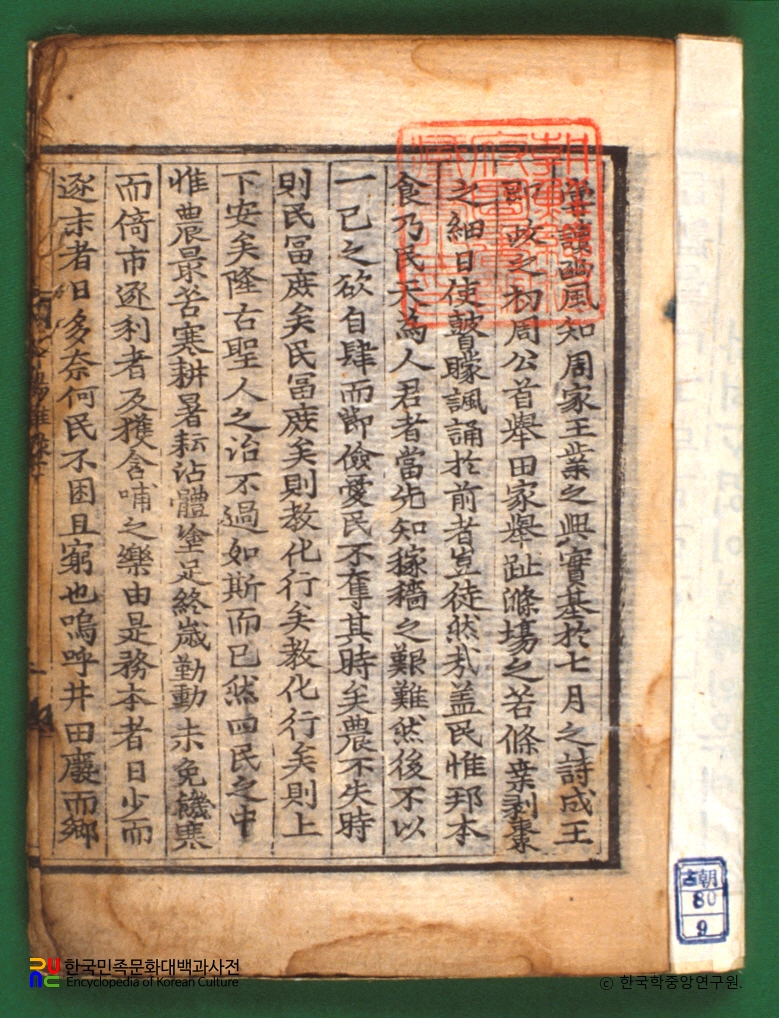 嘗讀豳風知周家王業之興實基於七月之詩成王
卽政之初周公首舉田家舉趾滌場之苦條桒剥棗
之細日使瞽矇諷誦於前者豈徒然㢤盖民惟邦本
食乃民天為人君者當先知稼穡之艱難然後不以
一己之欲自肆而節儉愛民不奪其時矣農不失時
則民冨庶矣民冨庶矣則教化行矣教化行矣則上
下安矣隆古聖人之治不過如斯而已然四民之中
惟農最苦寒耕暑耘沾體塗足終歲勤動未免饑寒
而倚市逐利者反獲含哺之樂由是務本者日少而
逐末者日多奈何民不困且窮也嗚呼井田廢而鄉
古朝
80
9
한국민족문화대백과사전
Encyclopedia of Korean Culture
© 한국학중앙연구원.